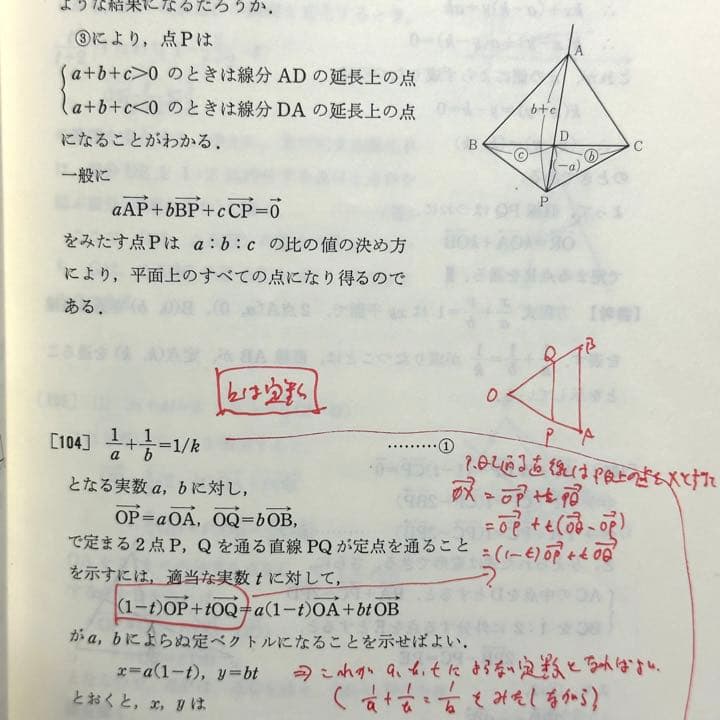 ような結果になるだろうか.
③により，点Pは
a+b+c>0 のときは線分 AD の延長上の点
a+b+c<0 のときは線分 DA の延長上の点
になることがわかる.
一般に
aAP+bBP+cCP=0
をみたす点Pは a:b:c の比の値の決め方
により，平面上のすべての点になり得るので
ある.
A
b+c
B
D
C
c
b
(-a)
P
kは定数
O
Q
B
P
A
[104] 1/a+1/b=1/k ………①
となる実数 a, b に対し,
OP=aOA, OQ=bOB,
で定まる2点P，Qを通る直線PQが定点を通ること
を示すには，適当な実数 t に対して,
(1-t)OP+tOQ=a(1-t)OA+btOB
がa, bによらぬ定ベクトルになることを示せばよい.
x=a(1-t), y=bt
とおくと，x, yは
P,Qを通る直線はPQ上の点をXとすると
OX=OP+tPQ
=OP+t(OQ-OP)
=(1-t)OP+tOQ
⇒これが a, b, t によらない定数となればよい
(1/a+1/b=1/k をみたしながら)